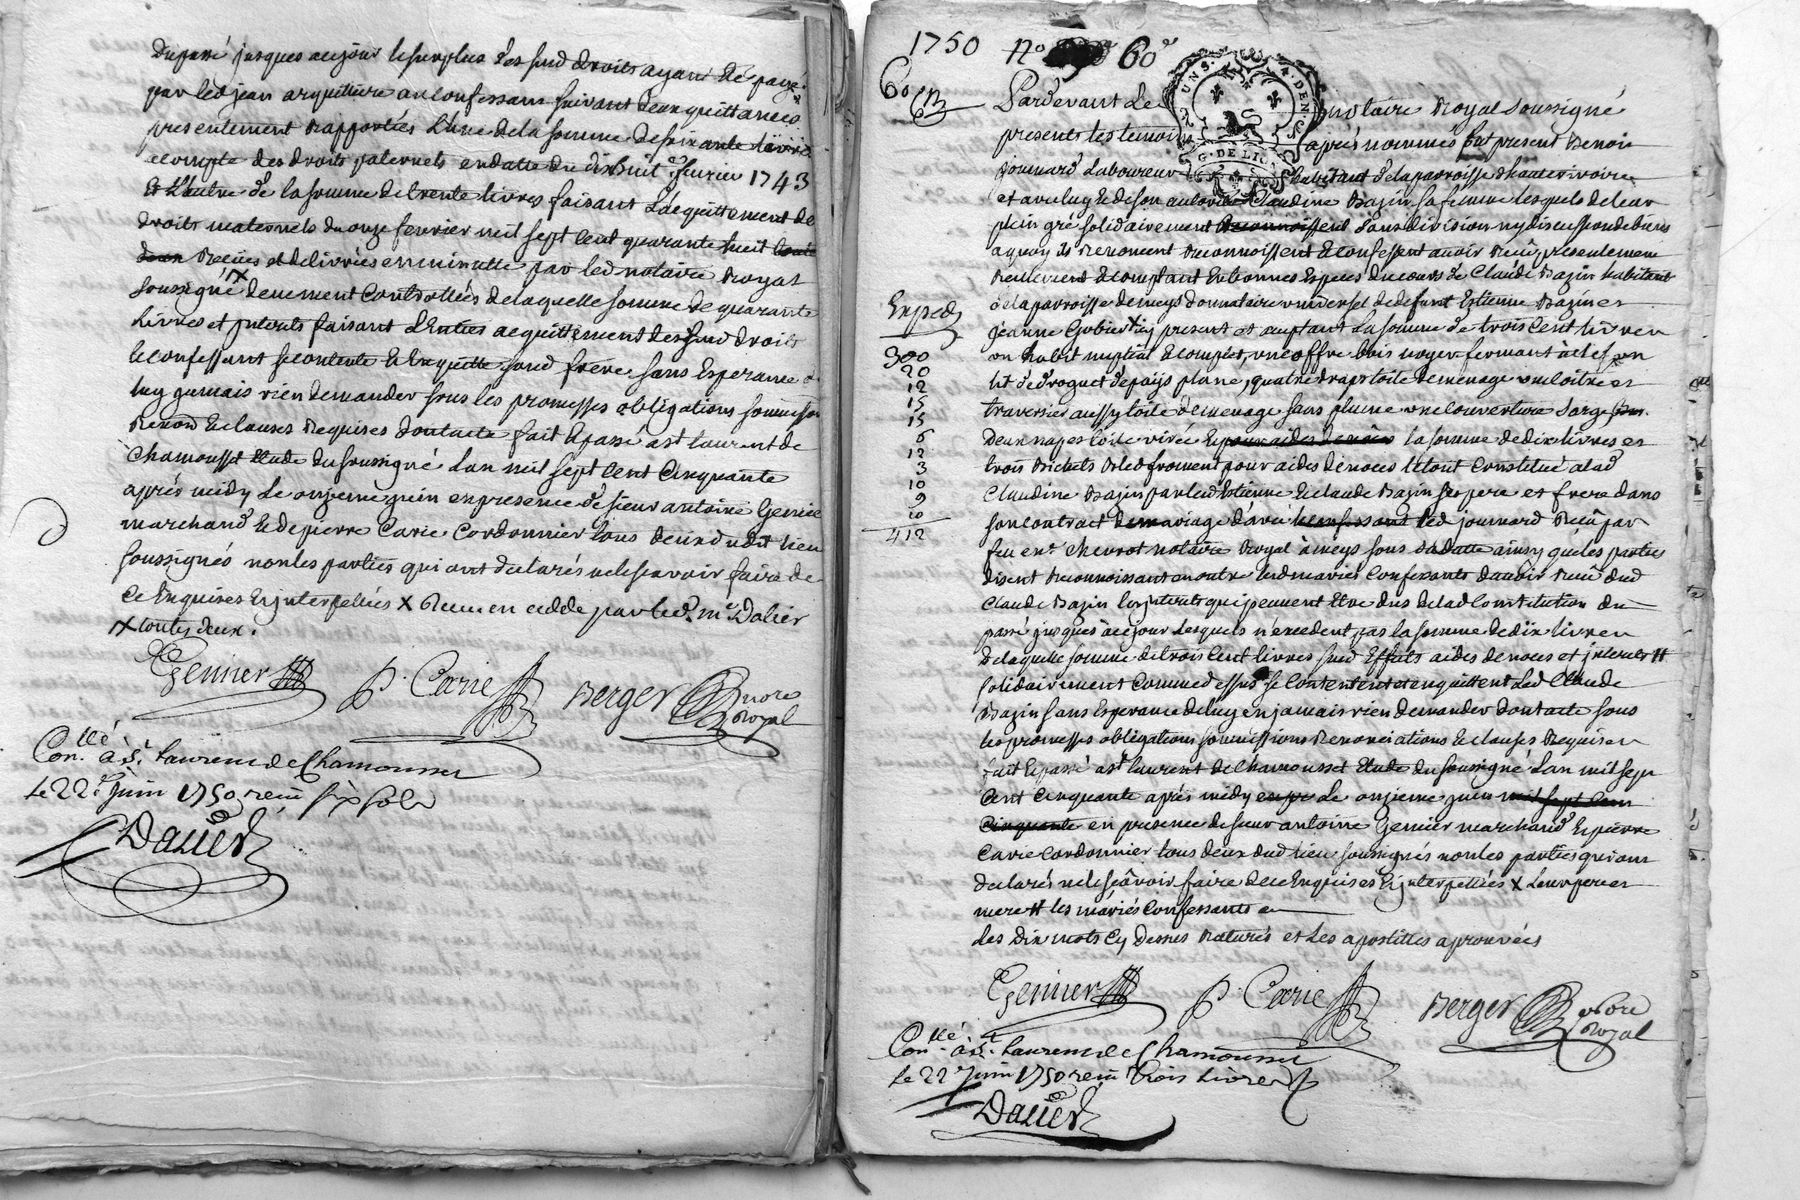 Du passé jusques au jour le surplus des sud droits ayant été payé
par led jean arquilliere au confessant suivant deux quittances
presentement rapportées l'une de la somme de soixante livres
acompte des droits paternels en datte du dixhuit fevrier 1743
Et l'autre de la somme de trente livres faisant l'acquittement de
droits maternels du onze fevrier mil sept cent quarante huit
Recües et delivrées en minutte par led notaire Royal
soussigné X duement Controllées de laquelle somme de quarante
livres et interets faisant l'Entier acquittement des sud droits
le confessant se contente Et En quitte sond frere sans Esperance de
luy jamais rien demander sous les promesses obligations soumissions
Renon Et clauses Requises dont acte fait Et passé a st laurent de
Chamousset Etude du soussigné Lan mil sept cent Cinquante
après midy Le onzieme juin en presence de sieur antoine Genier
marchand Et de pierre Carie Cordonnier tous deux dudit lieu
soussignés non les parties qui ont declarés ne le scavoir faire de
Ce Enquises Et interpellées X Receu en cedde par led. me. Dalier
X toutes deux.
Genier P. Carie Berger nore
Royal
Con.llé à St. Laurent de Chamousset
le 22e. Juin 1750 reçû six sols
Dalier
1750 no 60e
60
Pardevant Le notaire Royal soussigné
presents les temoins après nommés fut present Benoit
Joumard Laboureur habitant de la parroisse d'hauterivoire
et avec luy Et de son autorité Claudine Bazin sa femme lesquels de leur
plein gré solidairement Reconnoissent sans division ny discussion de biens
a quoy ils Renoncent Reconnoissent Et confessent avoir Reçû presentement
Reellement Et comptant En bonnes Especes du cours de Claude Bazin habitant
de la parroisse de meys donnataire universel de defunt Estienne Bazin et
Jeanne Gubier X icy present et aceptant La somme de trois cent livres
un habit nuptial Et complet, une coffre bois noyer fermant à clef, un
lit de droguet de païs plane, quatre draps toile de menage une coitre et
traversier aussy toile de menage sans plume une couverture sarge
Deux napes toile virée la somme de dix livres et
trois bichets bled froment pour aides de noces le tout Constitué a lad
Claudine Bazin par led Estienne Et claude Bazin ses pere et frere dans
son contract de mariage d'avec led joumard Reçû par
feu me. Chevrot notaire Royal à meys sous sa datte ainsy que les parties
disent Reconnoissant en outre lesd mariés Confessants d'avoir Reçû dud
Claude Bazin les interets qui peuvent Etre dus de lad Constitution du
passé jusques à ce jour Lesquels n'excedent pas la somme de dix livres
De laquelle somme de trois Cent livres sud Effets aides de noces et interets #
solidairement Comme dessus se Contentent et en quittent Led Claude
Bazin sans Esperance de luy en jamais rien demander dont acte sous
les promesses obligations soumissions Renonciations Et clauses Requises
fait Et passé a st laurent de Chamousset Etude du soussigné Lan mil sept
Cent Cinquante après midy Le onzieme juin mil sept cent
Cinquante en presence de sieur antoine Genier marchand Et pierre
Carie Cordonnier tous deux dud lieu soussignés non les parties qui ont
declarés ne le sçavoir faire de ce Enquises Et interpellées X Leur pere et
mere # les mariés Confessants
Les Dix mots Cy Dessus Raturés et Les apostilles aprouvées
Genier P. Carie Berger nore
Royal
Con.llé à St. Laurent de Chamousset
le 22 Juin 1750 reçû trois Livres
Dalier
Exped
300
20
12
15
15
6
12
3
10
9
10
412
G. DE LION